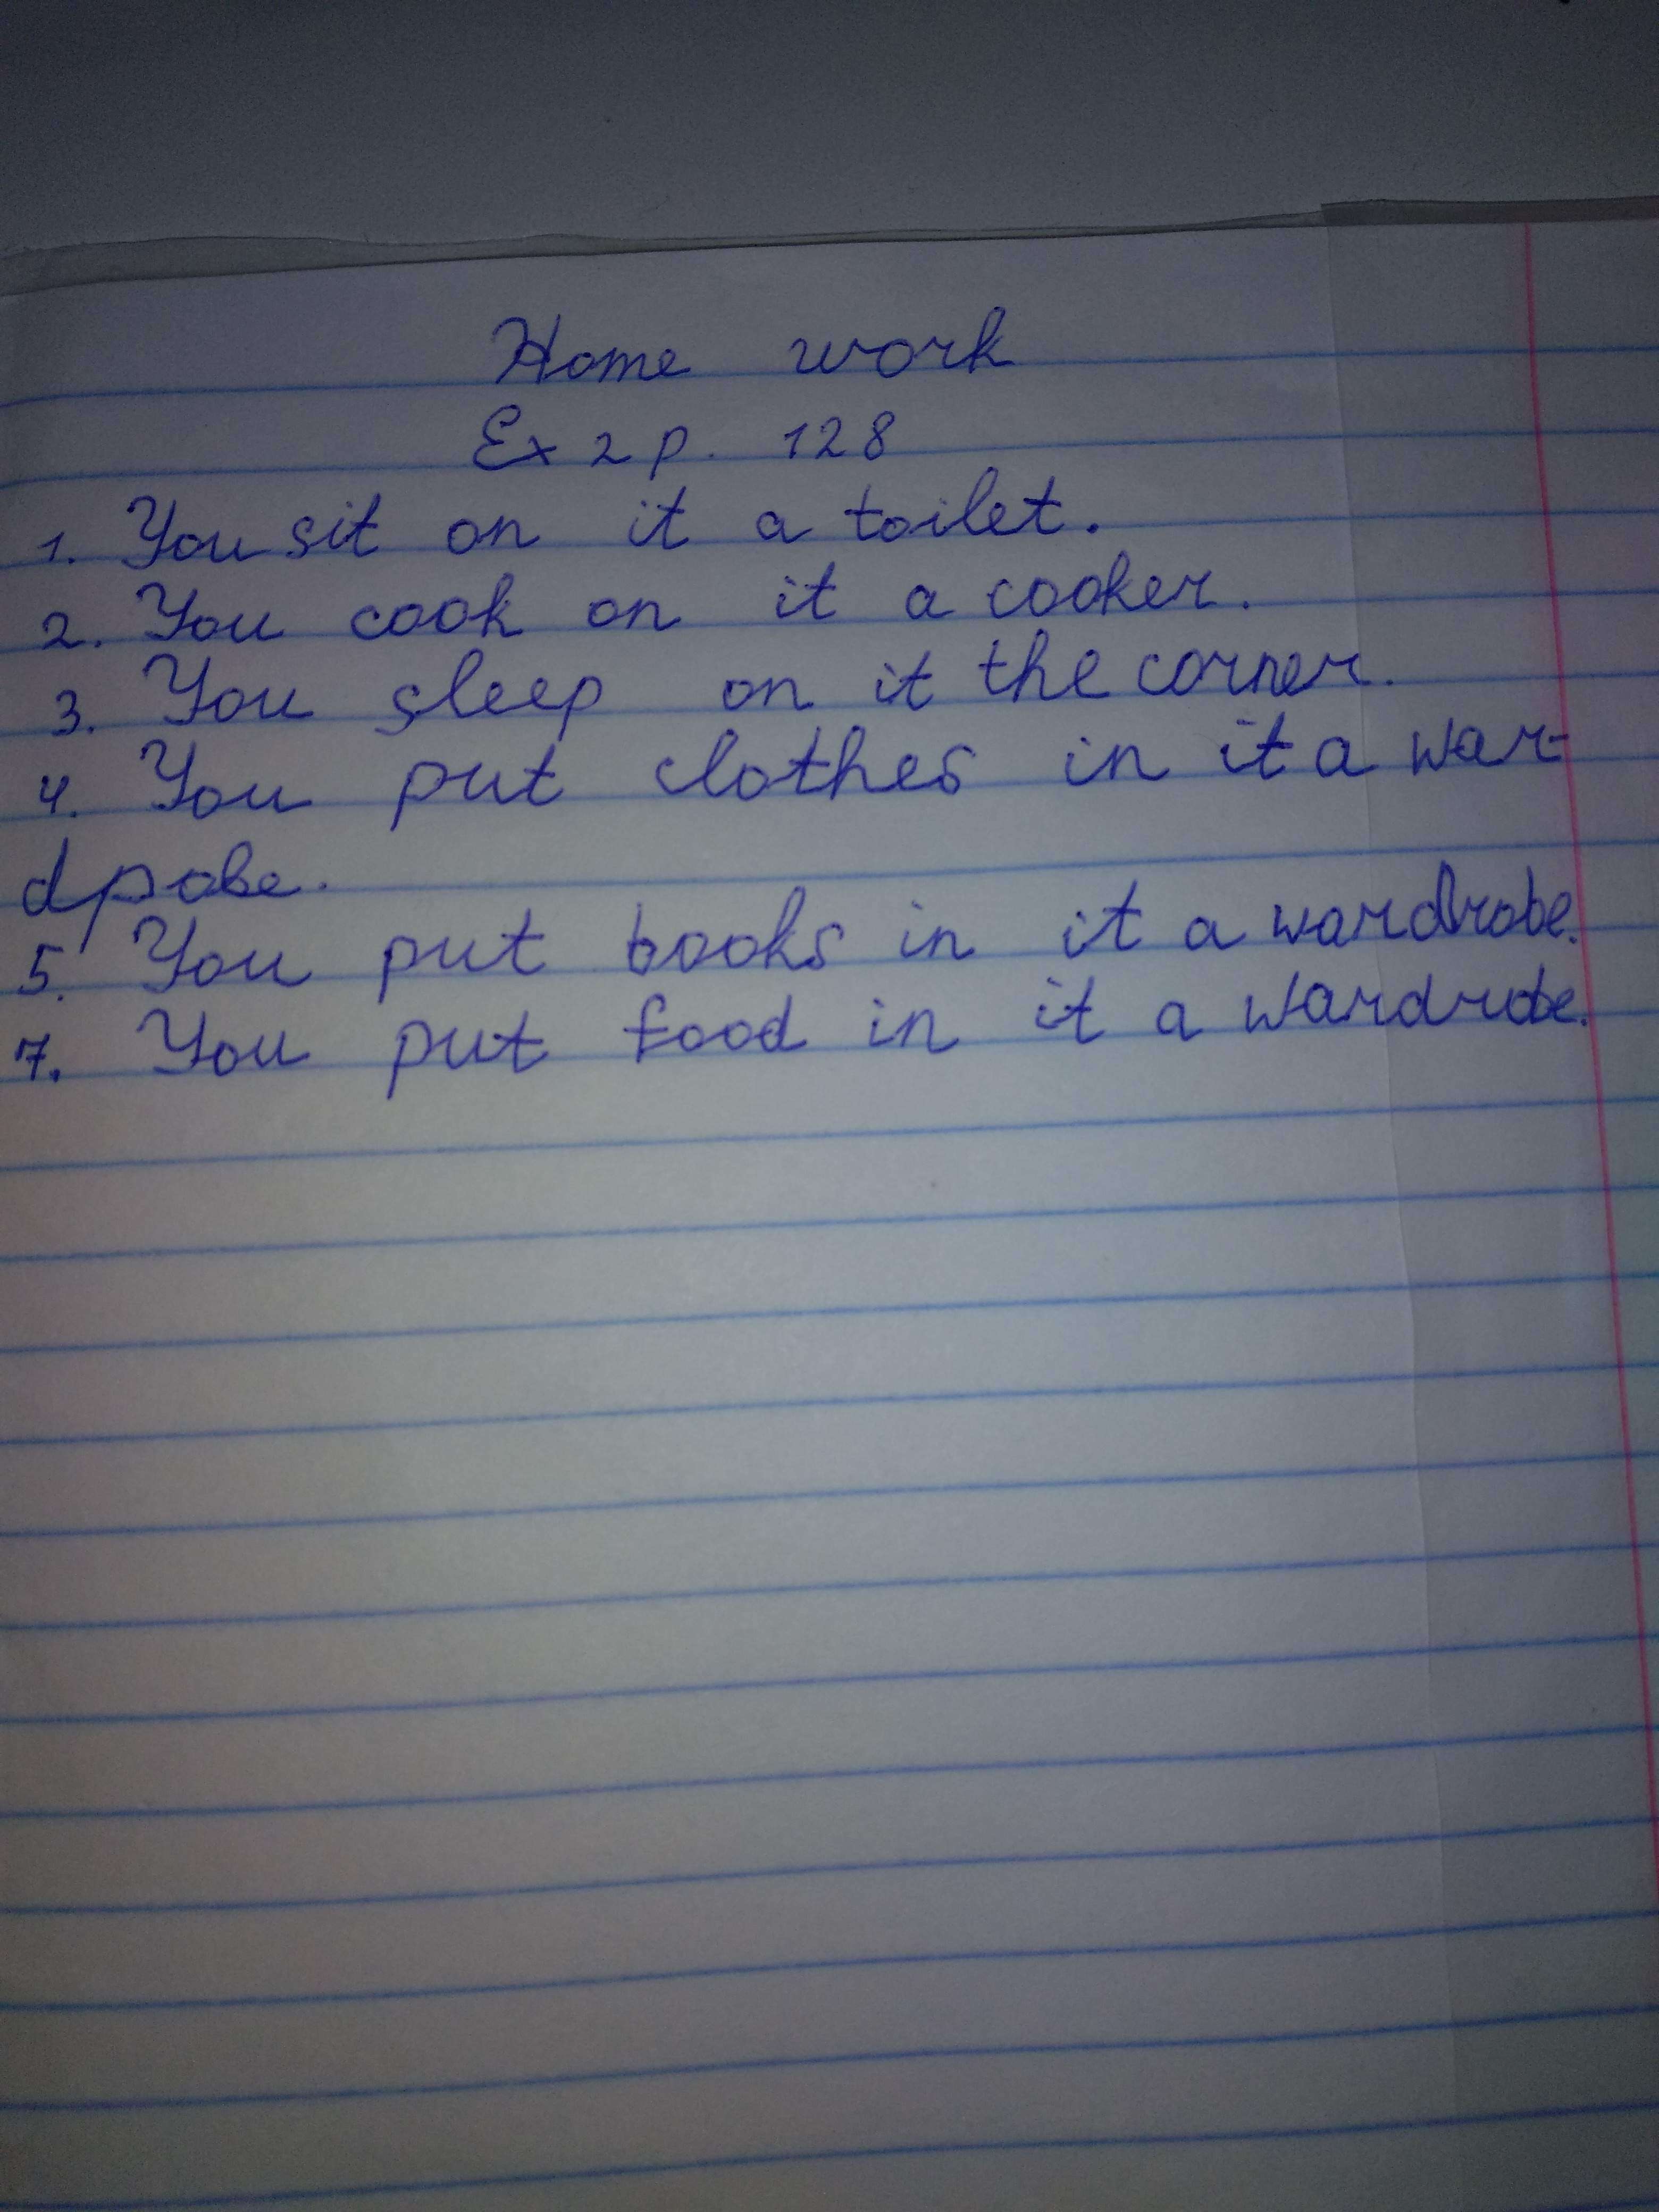 Home work
Ex 2 p. 128
1. You sit on it a toilet.
2. You cook on it a cooker.
3. You sleep on it the corner.
4. You put clothes in it a war-
dpobe.
5. You put books in it a wardrobe.
7. You put food in it a wardrobe.